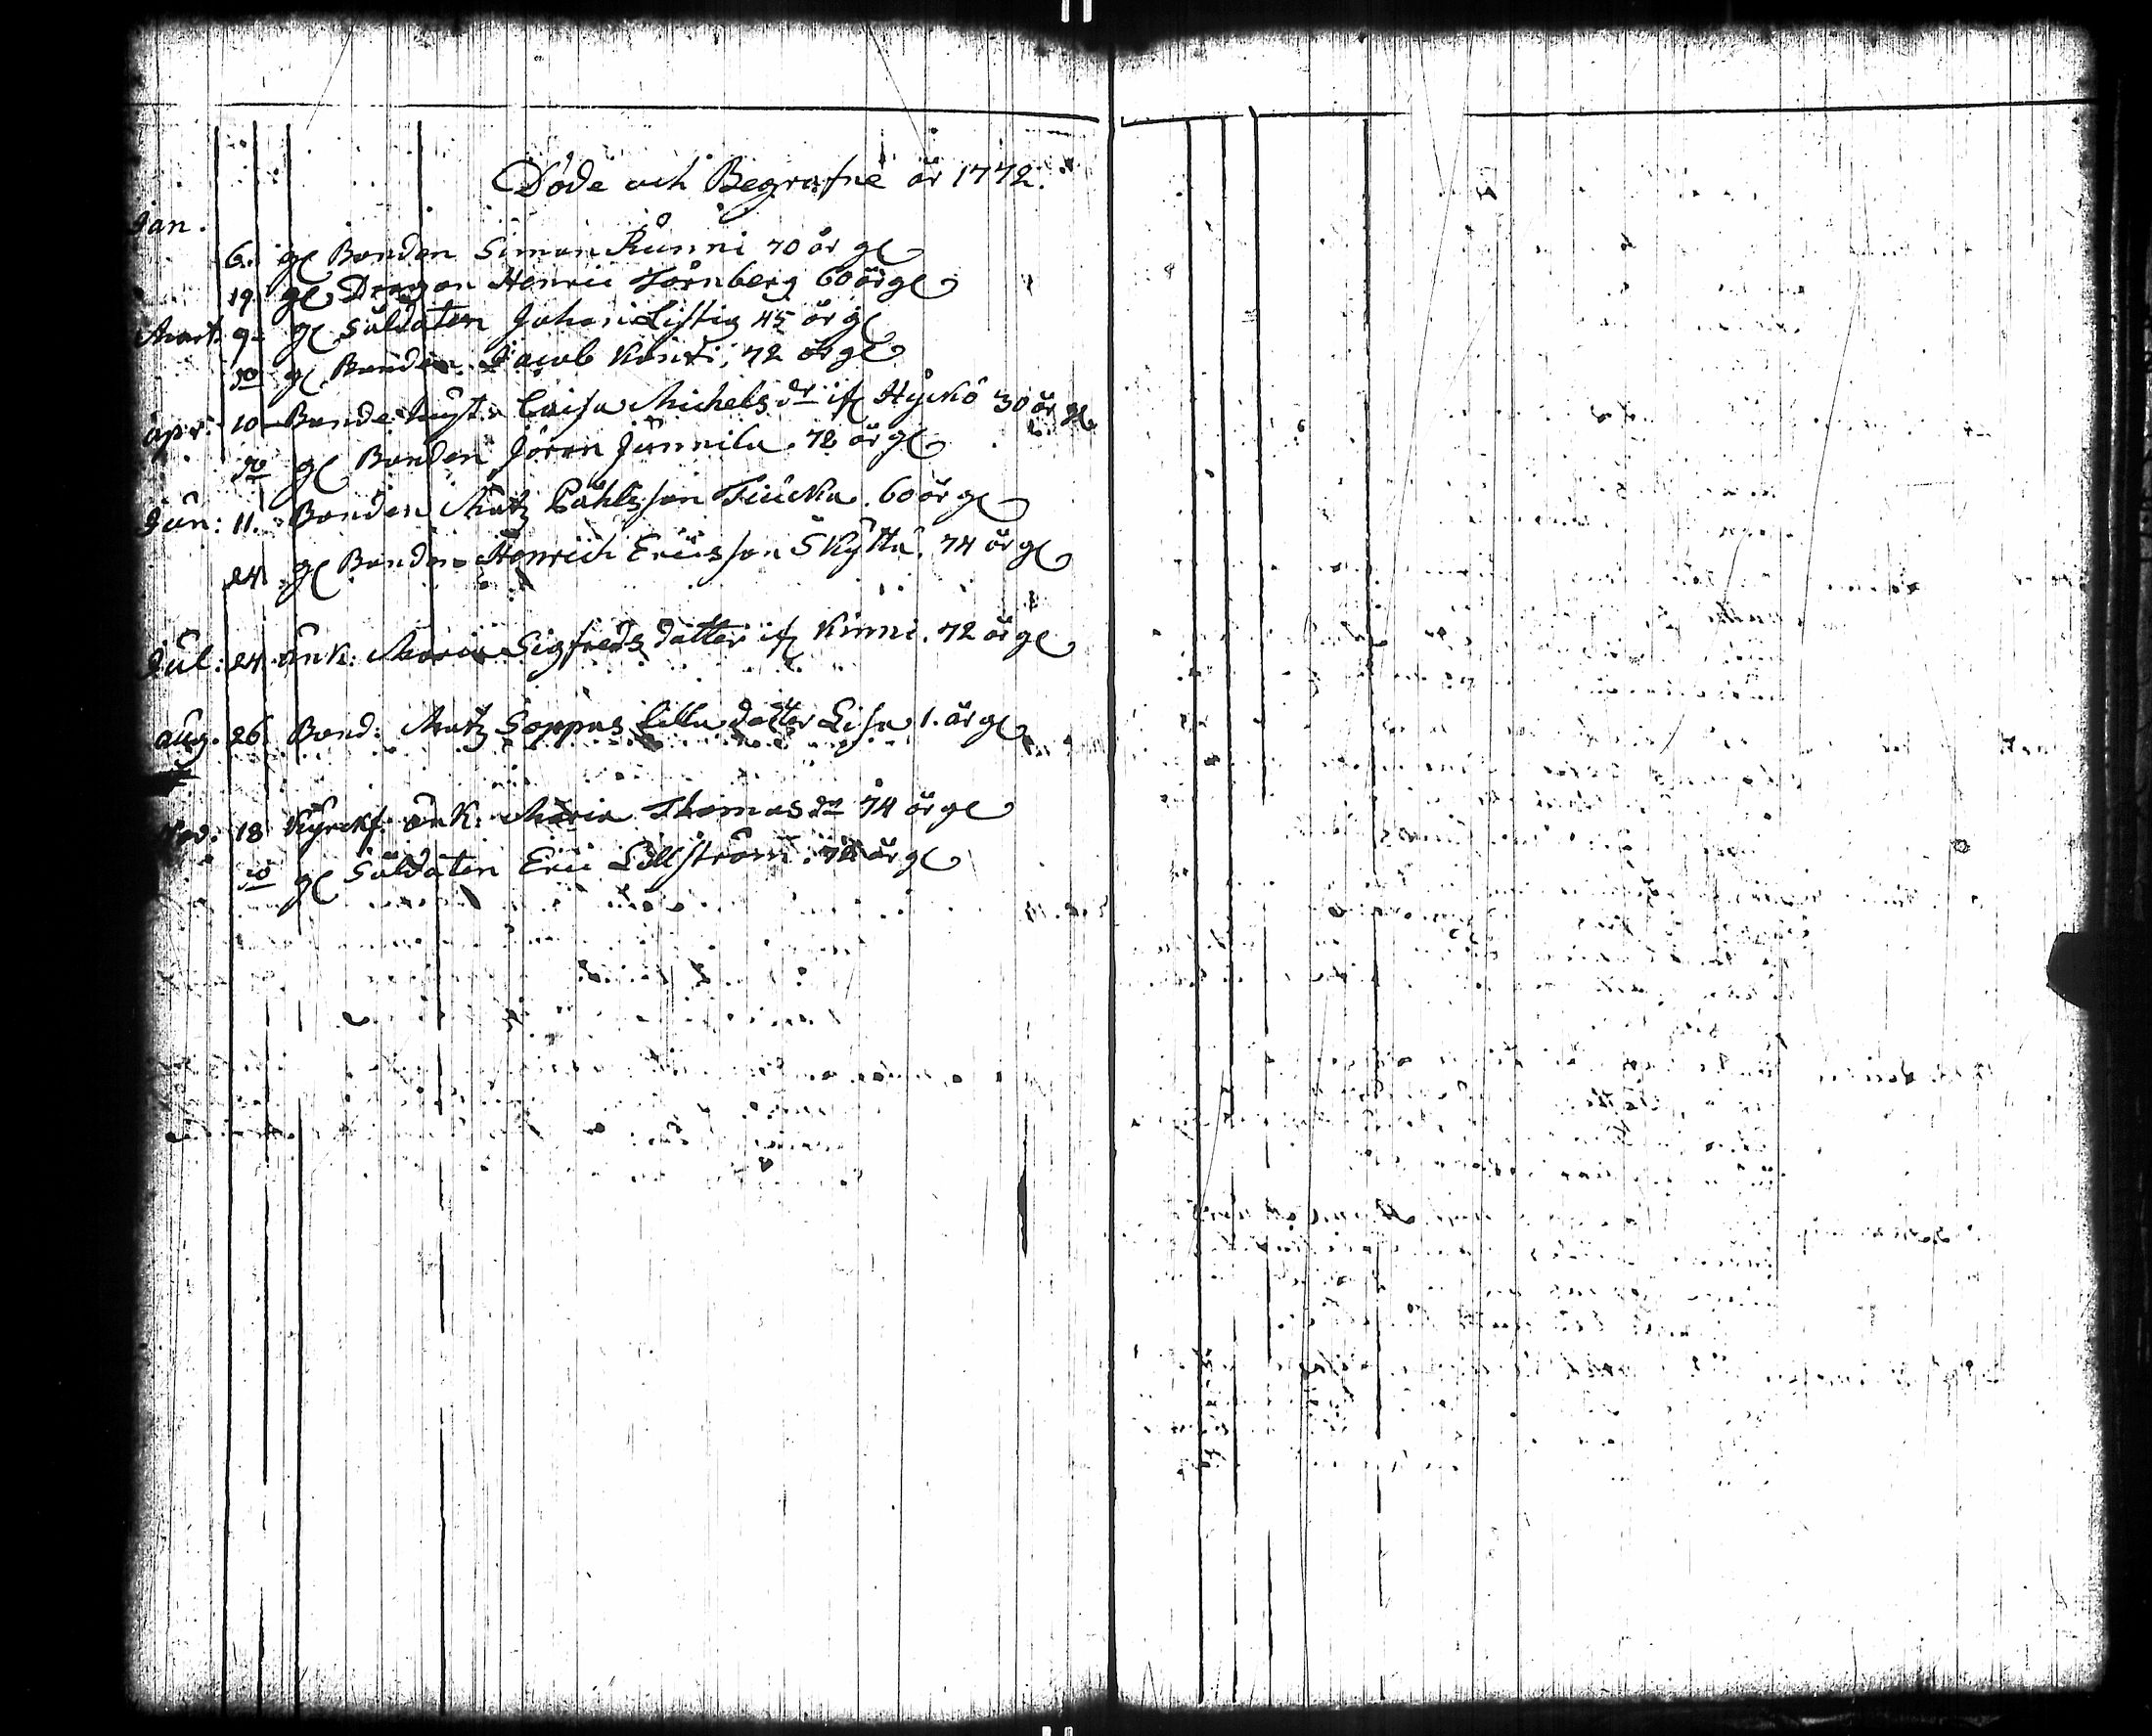 Döde och Begrafne år 1772.
Jan.
6. gl Bonden Simon Kunni 70 år gl
19 gl Dragon Henric Törnberg 60 år gl
Mart. 9. gl Soldaten Johan Listig 45 år gl
do gl Bonden Jacob Konti, 72 år gl
apr: 10 Bonde hustr. Caisa Michels dr if Hyckö 30 år gl
do gl Bonden Jöran Junnila 72 år gl
Jun: 11. Bonden Matz Påhlsson Tiucka. 60 år gl
24 gl Bonden Henrich Ericsson Skyttä. 74 år gl
Jul: 24 Enk: Maria Sigfreds dotter if Kinni. 72 år gl
aug. 26 Bond: Matz Soppas lilla dotter Lisa 1. år gl
Nov: 18 Kyrckf: Enk: Maria Thomas dr 74 år gl
do gl Soldaten Eric Lillström. 72 år gl